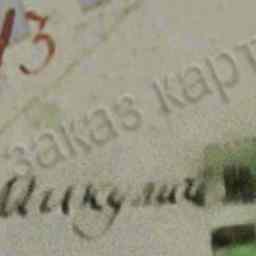 13
заказ карт
Микулич